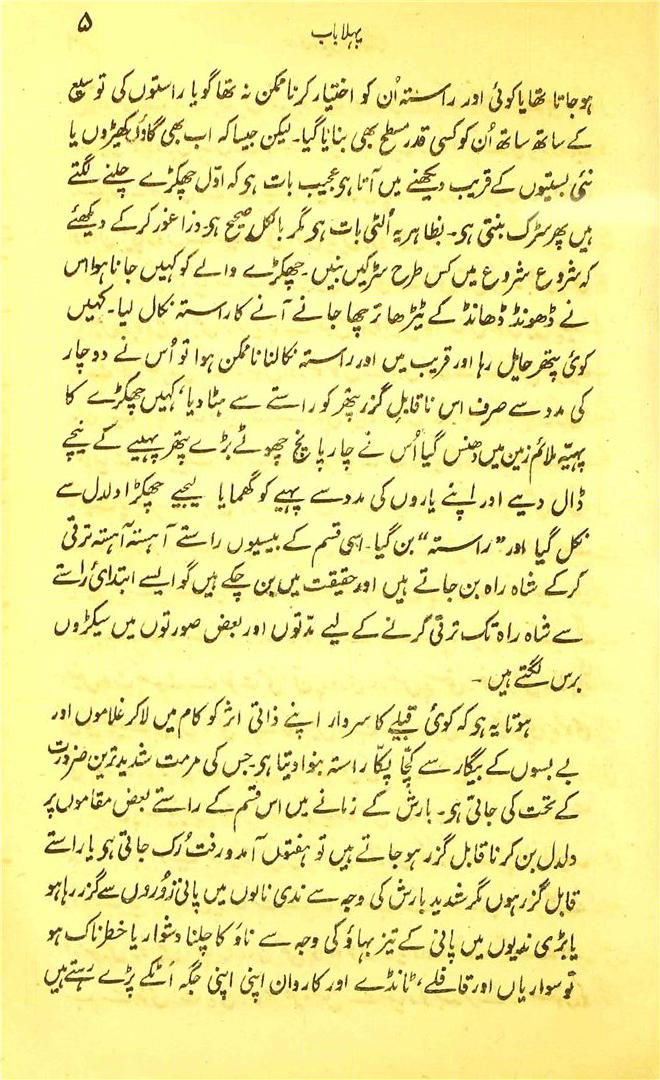 پہلا باب
۵
ہو جاتا تھا یا کوئی اور راستہ اُن کو اختیار کرنا ممکن نہ تھا گویا راستوں کی توسیع
کے ساتھ ساتھ اُن کو کسی قدر مسطح بھی بنایا گیا۔ لیکن جیسا کہ اب بھی گاؤں کھیڑوں یا
نئی بستیوں کے قریب دیکھنے میں آتا ہو عجیب بات ہو کہ اوّل چھکڑے چلنے لگتے
ہیں پھر سڑک بنتی ہو۔ بظاہر یہ اُلٹی بات ہو مگر بالکل صحیح ہو۔ ذرا غور کر کے دیکھئے
کہ شروع شروع میں کس طرح سڑکیں بنیں۔ چھکڑے والے کو کہیں جانا ہوا اس
نے ڈھونڈ ڈھانڈ کے ٹیڑھا ترچھا جانے آنے کا راستہ نکال لیا۔ کہیں
کوئی پتھر حایل رہا اور قریب میں اور راستہ نکالنا ناممکن ہوا تو اُس نے دو چار
کی مدد سے صرف اس ناقابلِ گزر پتھر کو راستے سے ہٹا دیا، کہیں چھکڑے کا
پہیّہ ملائم زمین میں دھنس گیا اُس نے چار پانچ چھوٹے بڑے پتھر پہیے کے نیچے
ڈال دیے اور اپنے یاروں کی مدد سے پہیے کو گھمایا لیجیے چھکڑا دلدل سے
نکل گیا اور ”راستہ“ بن گیا۔ اسی قسم کے بیسیوں راستے آہستہ آہستہ ترقی
کر کے شاہ راہ بن جاتے ہیں اور حقیقت میں بن چکے ہیں گو ایسے ابتدائی راستے
سے شاہ راہ تک ترقی کرنے کے لیے مدّتوں اور بعض صورتوں میں سیکڑوں
برس لگتے ہیں۔
ہوتا یہ ہو کہ کوئی قبیلے کا سردار اپنے ذاتی اثر کو کام میں لاکر غلاموں اور
بے بسوں کے بیگار سے کچّا پکّا راستہ بنوا دیتا ہو جس کی مرمت شدید ترین ضرورت
کے تحت کی جاتی ہو۔ بارش کے زمانے میں اس قسم کے راستے بعض مقاموں پر
دلدل بن کر ناقابل گزر ہو جاتے ہیں تو ہفتوں آمد و رفت رُک جاتی ہو یا راستے
قابل گزر ہوں مگر شدید بارش کی وجہ سے ندی نالوں میں پانی زوروں سے گزر رہا ہو
یا بڑی ندیوں میں پانی کے تیز بہاؤ کی وجہ سے ناؤ کا چلنا دشوار یا خطرناک ہو
تو سواریاں اور قافلے، ٹانڈے اور کارواں اپنی اپنی جگہ اٹکے پڑے رہتے ہیں